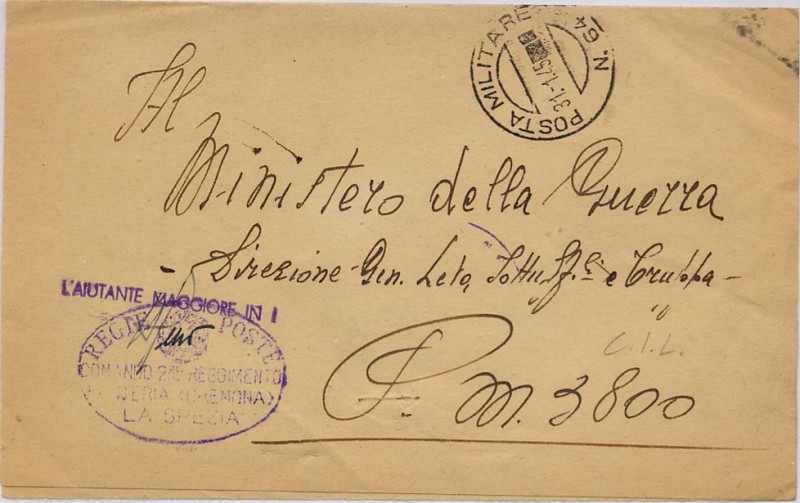 POSTA MILITARE N. 64
31.1.45
Al
Ministero della Guerra
- Direzione Gen. Leva Sottuff.li e Truppa -
C.I.L.
P. M. 3800
L'AIUTANTE MAGGIORE IN I
REGIE POSTE
COMANDO REGGIMENTO
(CREMONA)
LA SPEZIA